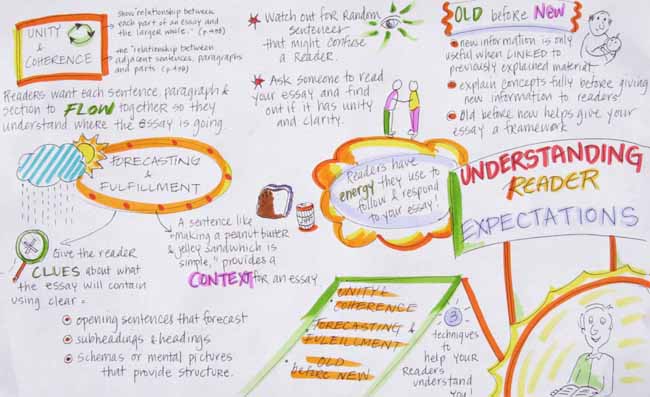 UNITY
&
COHERENCE
show "relationship between
each part of an essay and
the larger whole." (p.
the "relationship between
adjacent sentences, paragraphs
and parts." (p.
Readers want each sentence, paragraph &
section to FLOW together so they
understand where the essay is going.
FORECASTING
&
FULFILLMENT
Give the reader
CLUES about what
the essay will contain
using clear =
opening sentences that forecast
subheadings & headings
schemas or mental pictures
that provide structure.
A sentence like
"making a peanut buter
& jelley sandwhich is
simple," provides a
CONTEXT for an essay
Watch out for Random
Sentences
that might confuse
a Reader.
Ask someone to read
your essay and find
out if it has unity
and clarity.
Readers have
energy they use to
follow & respond
to your essay!
OLD before NEW
new information is only
useful when LINKED to
previously explained material
explain concepts fully before giving
new information to readers
Old before new helps give your
essay a framework
UNDERSTANDING
READER
EXPECTATIONS
UNITY &
COHERENCE
FORECASTING &
FULFILLMENT
OLD
before NEW
3
techniques
to
help your
Readers
understand
you!